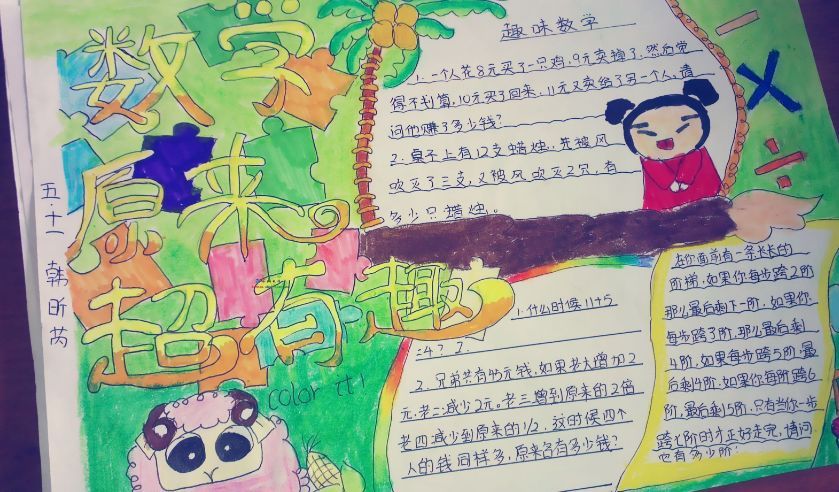 数学
原来。
超有趣
五·十一 韩昕芮
趣味数学
1. 一个人花8元买了一只鸡，9元卖掉了，然后觉
得不划算，10元买了回来，11元又卖给了另一个人，请
问他赚了多少钱？
2. 桌子上有12支蜡烛，先被风
吹灭了三支，又被风吹灭2只，有
多少只蜡烛。
color it!
1. 什么时候11+5
=4？2.
2. 兄弟共有45元钱，如果老大增加2
元，老二减少2元。老三增到原来的2倍
老四减少到原来的1/2，这时候四个
人的钱同样多，原来各有多少钱？
在你面前有一条长长的
阶梯，如果你每步跨2阶
那么最后剩下一阶，如果你
每步跨3阶，那么最后剩
4阶，如果每步跨5阶，最
后剩4阶，如果你每阶跨6
阶，最后剩5阶，只有当你一步
跨七阶时才正好走完，请问
也有多少阶？